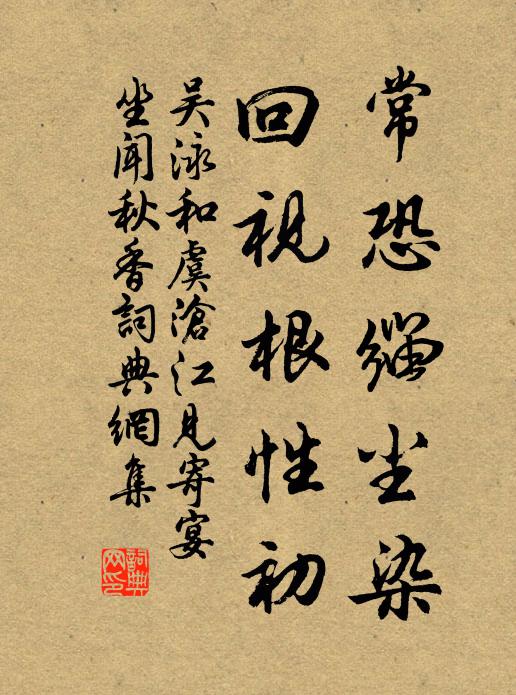 常恐緇尘染
回視根性初
吴泳和虞滄江見寄宴
坐聞秋香詞典網集
詞典网印